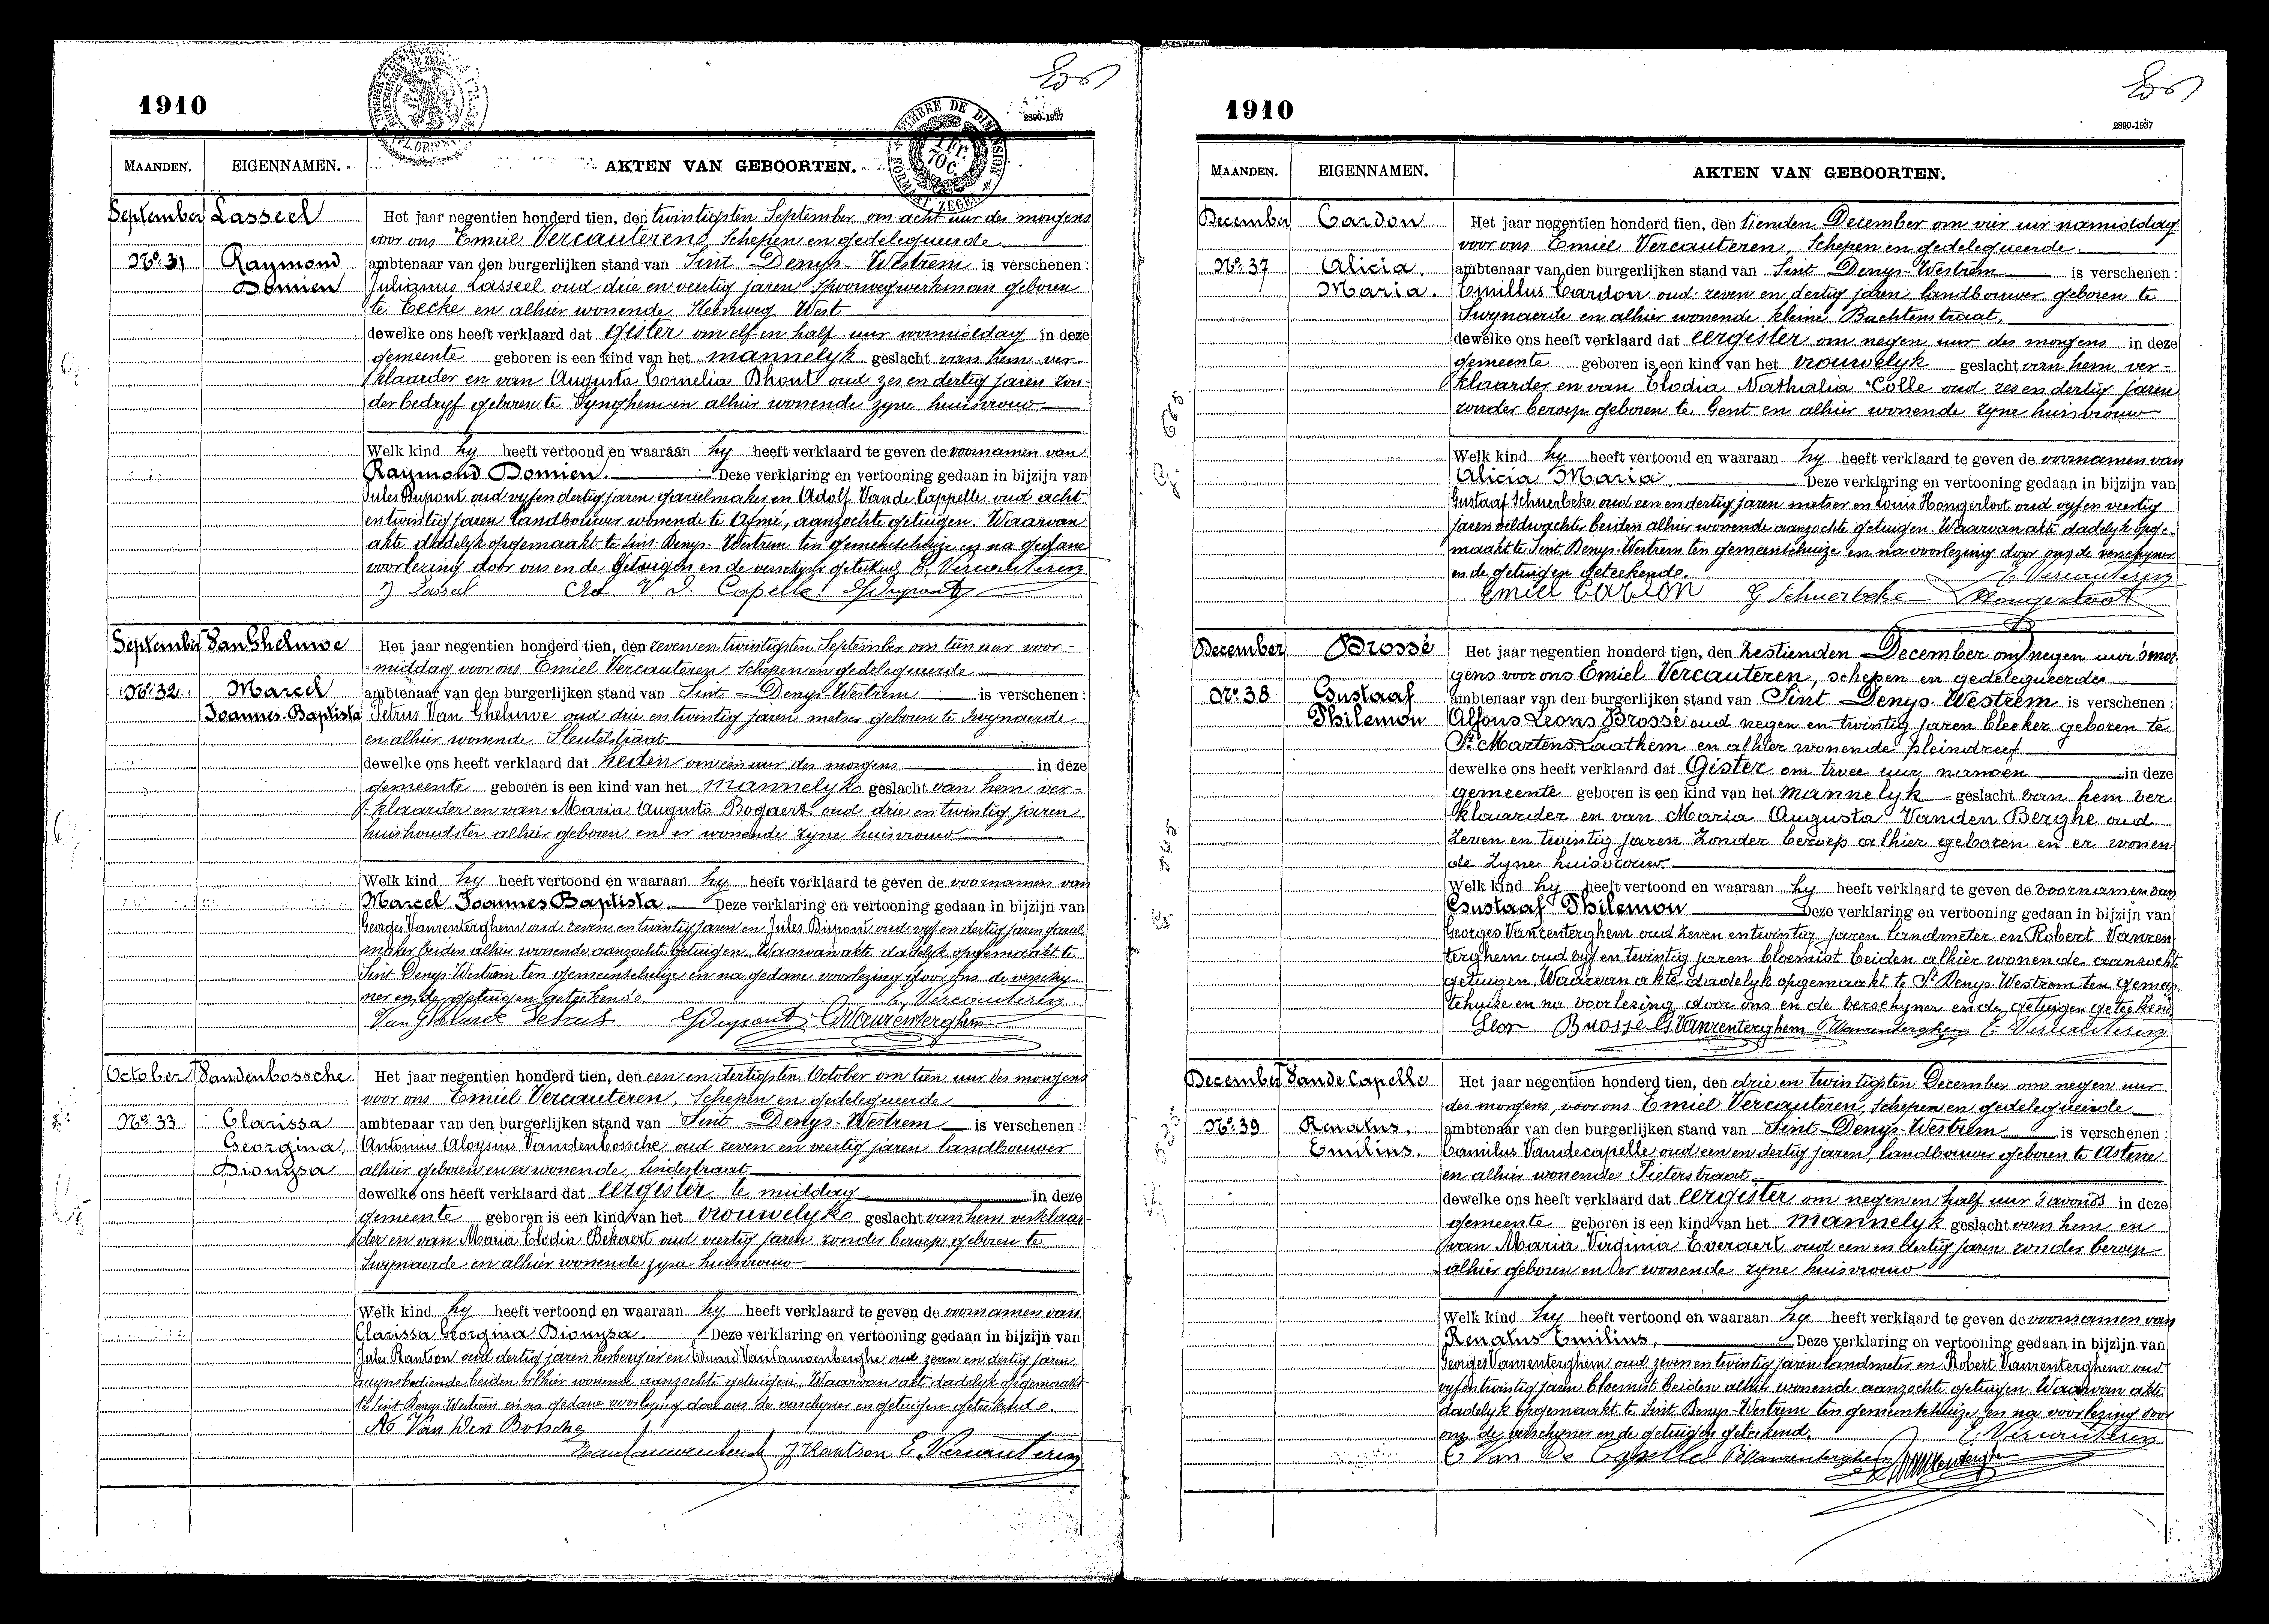 1910
2890-1937
MAANDEN. EIGENNAMEN. AKTEN VAN GEBOORTEN.
TIMBRE DE DIMENSION
1 Fr. 70 C.
September Lasseel Het jaar negentien honderd tien, den twintigsten September om acht uur des morgens
voor ons Emiel Vercauteren, Schepen en gedelegueerde
No. 31 Raymond ambtenaar van den burgerlijken stand van Sint Denys-Westrem is verschenen :
Domien Julianus Lasseel oud drie en veertig jaren spoorwegwerkman geboren
te Eecke en alhier wonende Steenweg West
dewelke ons heeft verklaard dat gister om elf en half uur voormiddag in deze
gemeente geboren is een kind van het mannelyk geslacht van hem ver-
klaarder en van Augusta Cornelia Dhont oud zes en dertig jaren zon-
der bedryf geboren te en alhier wonende zyne huisvrouw
Welk kind hy heeft vertoond en waaraan hy heeft verklaard te geven de voornamen van
Raymond Domien. Deze verklaring en vertooning gedaan in bijzijn van
Jules Dupont oud vyf en dertig jaren en Adolf Van de Cappelle oud acht
en twintig jaren landbouwer wonende te Afsné, aanzochte getuigen. Waarvan
akte dadelyk opgemaakt te Sint-Denys-Westrem ten gemeentehuize en na gedane
voorlezing door ons en de getuigen en de verschyner geteekend E. Vercauteren
J. Lasseel Ad. V. D. Capelle J. Dupont
September Van Gheluwe Het jaar negentien honderd tien, den zeven en twintigsten September om tien uur voor-
middag voor ons Emiel Vercauteren Schepen en gedelegueerde
No. 32 Marcel ambtenaar van den burgerlijken stand van Sint Denys-Westrem is verschenen :
Joannes-Baptista Petrus Van Gheluwe oud drie en twintig jaren metser geboren te Swynaerde
en alhier wonende Sleutelstraat
dewelke ons heeft verklaard dat heden om een uur des morgens in deze
gemeente geboren is een kind van het mannelyk geslacht van hem ver-
klaarder en van Maria Augusta Bogaert oud drie en twintig jaren
huishoudster alhier geboren en er wonende zyne huisvrouw
Welk kind hy heeft vertoond en waaraan hy heeft verklaard te geven de voornamen van
Marcel Joannes Baptista. Deze verklaring en vertooning gedaan in bijzijn van
Georges Vanrenterghem oud zeven en twintig jaren en Jules Dupont oud vyf en dertig jaren
maker beiden alhier wonende aanzochte getuigen. Waarvan akte dadelyk opgemaakt te
Sint-Denys-Westrem ten gemeentehuize en na gedane voorlezing door ons de verschy-
ner en de getuigen geteekend. E. Vercauteren
Petrus J. Dupont G. Vanrenterghem
October Vandenbossche Het jaar negentien honderd tien, den een en dertigsten October om tien uur des morgens
voor ons Emiel Vercauteren, Schepen en gedelegueerde
No. 33 Clarissa ambtenaar van den burgerlijken stand van Sint Denys-Westrem is verschenen :
Georgina, Antonius Aloysius Vandenbossche oud zeven en veertig jaren landbouwer
Dionysa alhier geboren en er wonende, Lindestraat
dewelke ons heeft verklaard dat eergister te middag in deze
gemeente geboren is een kind van het vrouwelyk geslacht van hem verklaar-
der en van Maria Elodia Bekaert oud veertig jaren zonder beroep geboren te
Swynaerde en alhier wonende zyne huisvrouw
Welk kind hy heeft vertoond en waaraan hy heeft verklaard te geven de voornamen van
Clarissa Georgina Dionysa. Deze verklaring en vertooning gedaan in bijzijn van
Jules Rantson oud dertig jaren herbergier en Eduard Van Cauwenberghe oud zeven en dertig jaren
beiden alhier wonende aanzochte getuigen. Waarvan akt dadelyk opgemaakt
te Sint Denys-Westrem en na gedane voorlezing door ons de verschyner en getuigen geteekend.
Van Den Bossche
J Rantson E. Vercauteren
1910
2890-1937
MAANDEN. EIGENNAMEN. AKTEN VAN GEBOORTEN.
December Cardon Het jaar negentien honderd tien, den tienden December om vier uur namiddag
voor ons Emiel Vercauteren, Schepen en gedelegueerde
No. 37 Alicia, ambtenaar van den burgerlijken stand van Sint Denys-Westrem is verschenen :
Maria. Emillus Cardon oud zeven en dertig jaren landbouwer geboren te
Swynaerde en alhier wonende kleine Buchtenstraat,
dewelke ons heeft verklaard dat eergister om negen uur des morgens in deze
gemeente geboren is een kind van het vrouwelyk geslacht van hem ver-
klaarder en van Elodia Nathalia Colle oud zes en dertig jaren
zonder beroep geboren te Gent en alhier wonende zyne huisvrouw
Welk kind hy heeft vertoond en waaraan hy heeft verklaard te geven de voornamen van
Alicia Maria. Deze verklaring en vertooning gedaan in bijzijn van
Gustaaf Schuerbeke oud een en dertig jaren metser en Louis Hongerloot oud vyf en veertig
jaren veldwachter beiden alhier wonende aanzochte getuigen. Waarvan akte dadelyk opge-
maakt te Sint Denys-Westrem ten gemeentehuize en na voorlezing door ons de verschyner
en de getuigen geteekend. E. Vercauteren
Emiel Cardon G Schuerbeke Hongerloot
December Brossé Het jaar negentien honderd tien, den zestienden December om negen uur 's mor
gens voor ons Emiel Vercauteren, schepen en gedelegueerde
No. 38 Gustaaf ambtenaar van den burgerlijken stand van Sint Denys-Westrem is verschenen :
Philemon Alfons Leons Brossé oud negen en twintig jaren bleeker geboren te
St. Martens Laathem en alhier wonende pleindreef
dewelke ons heeft verklaard dat Gister om twee uur namoen in deze
gemeente geboren is een kind van het mannelyk geslacht van hem ver
klaarder en van Maria Augusta Vanden Berghe oud
zeven en twintig jaren zonder beroep alhier geboren en er wonen
de zyne huisvrouw.
Welk kind hy heeft vertoond en waaraan hy heeft verklaard te geven de voornamen van
Gustaaf Philemon Deze verklaring en vertooning gedaan in bijzijn van
Georges Vanrenterghem oud zeven en twintig jaren landmeter en Robert Vanren
terghem oud vyf en twintig jaren bloemist beiden alhier wonende aanzochte
getuigen. Waarvan akte dadelyk opgemaakt te St Denys-Westrem ten gemeen
tehuize en na voorlezing door ons en de verschyner en de getuigen geteekend
Leon Brosse G. Vanrenterghem R Vanrenterghem E. Vercauteren
December Van de Capelle Het jaar negentien honderd tien, den drie en twintigsten December om negen uur
des morgens, voor ons Emiel Vercauteren, Schepen en gedelegueerde
No. 39 Renatus, ambtenaar van den burgerlijken stand van Sint-Denys-Westrem is verschenen :
Emilius. Camilus Vandecapelle oud een en dertig jaren, landbouwer geboren te Astene
en alhier wonende Pieterstraat
dewelke ons heeft verklaard dat eergister om negen en half uur s'avonds in deze
gemeente geboren is een kind van het mannelyk geslacht van hem en
van Maria Virginia Everaert oud een en dertig jaren zonder beroep
alhier geboren en er wonende zyne huisvrouw
Welk kind hy heeft vertoond en waaraan hy heeft verklaard te geven de voornamen van
Renatus Emilius. Deze verklaring en vertooning gedaan in bijzijn van
Georges Vanrenterghem oud zeven en twintig jaren landmeter en Robert Vanrenterghem oud
vyf en twintig jaren bloemist beiden alhier wonende aanzochte getuigen. Waarvan akte
dadelyk opgemaakt te Sint Denys-Westrem ten gemeentehuize en na voorlezing door
ons de verschyner en de getuigen geteekend. E. Vercauteren
C Van De Capelle R Vanrenterghem